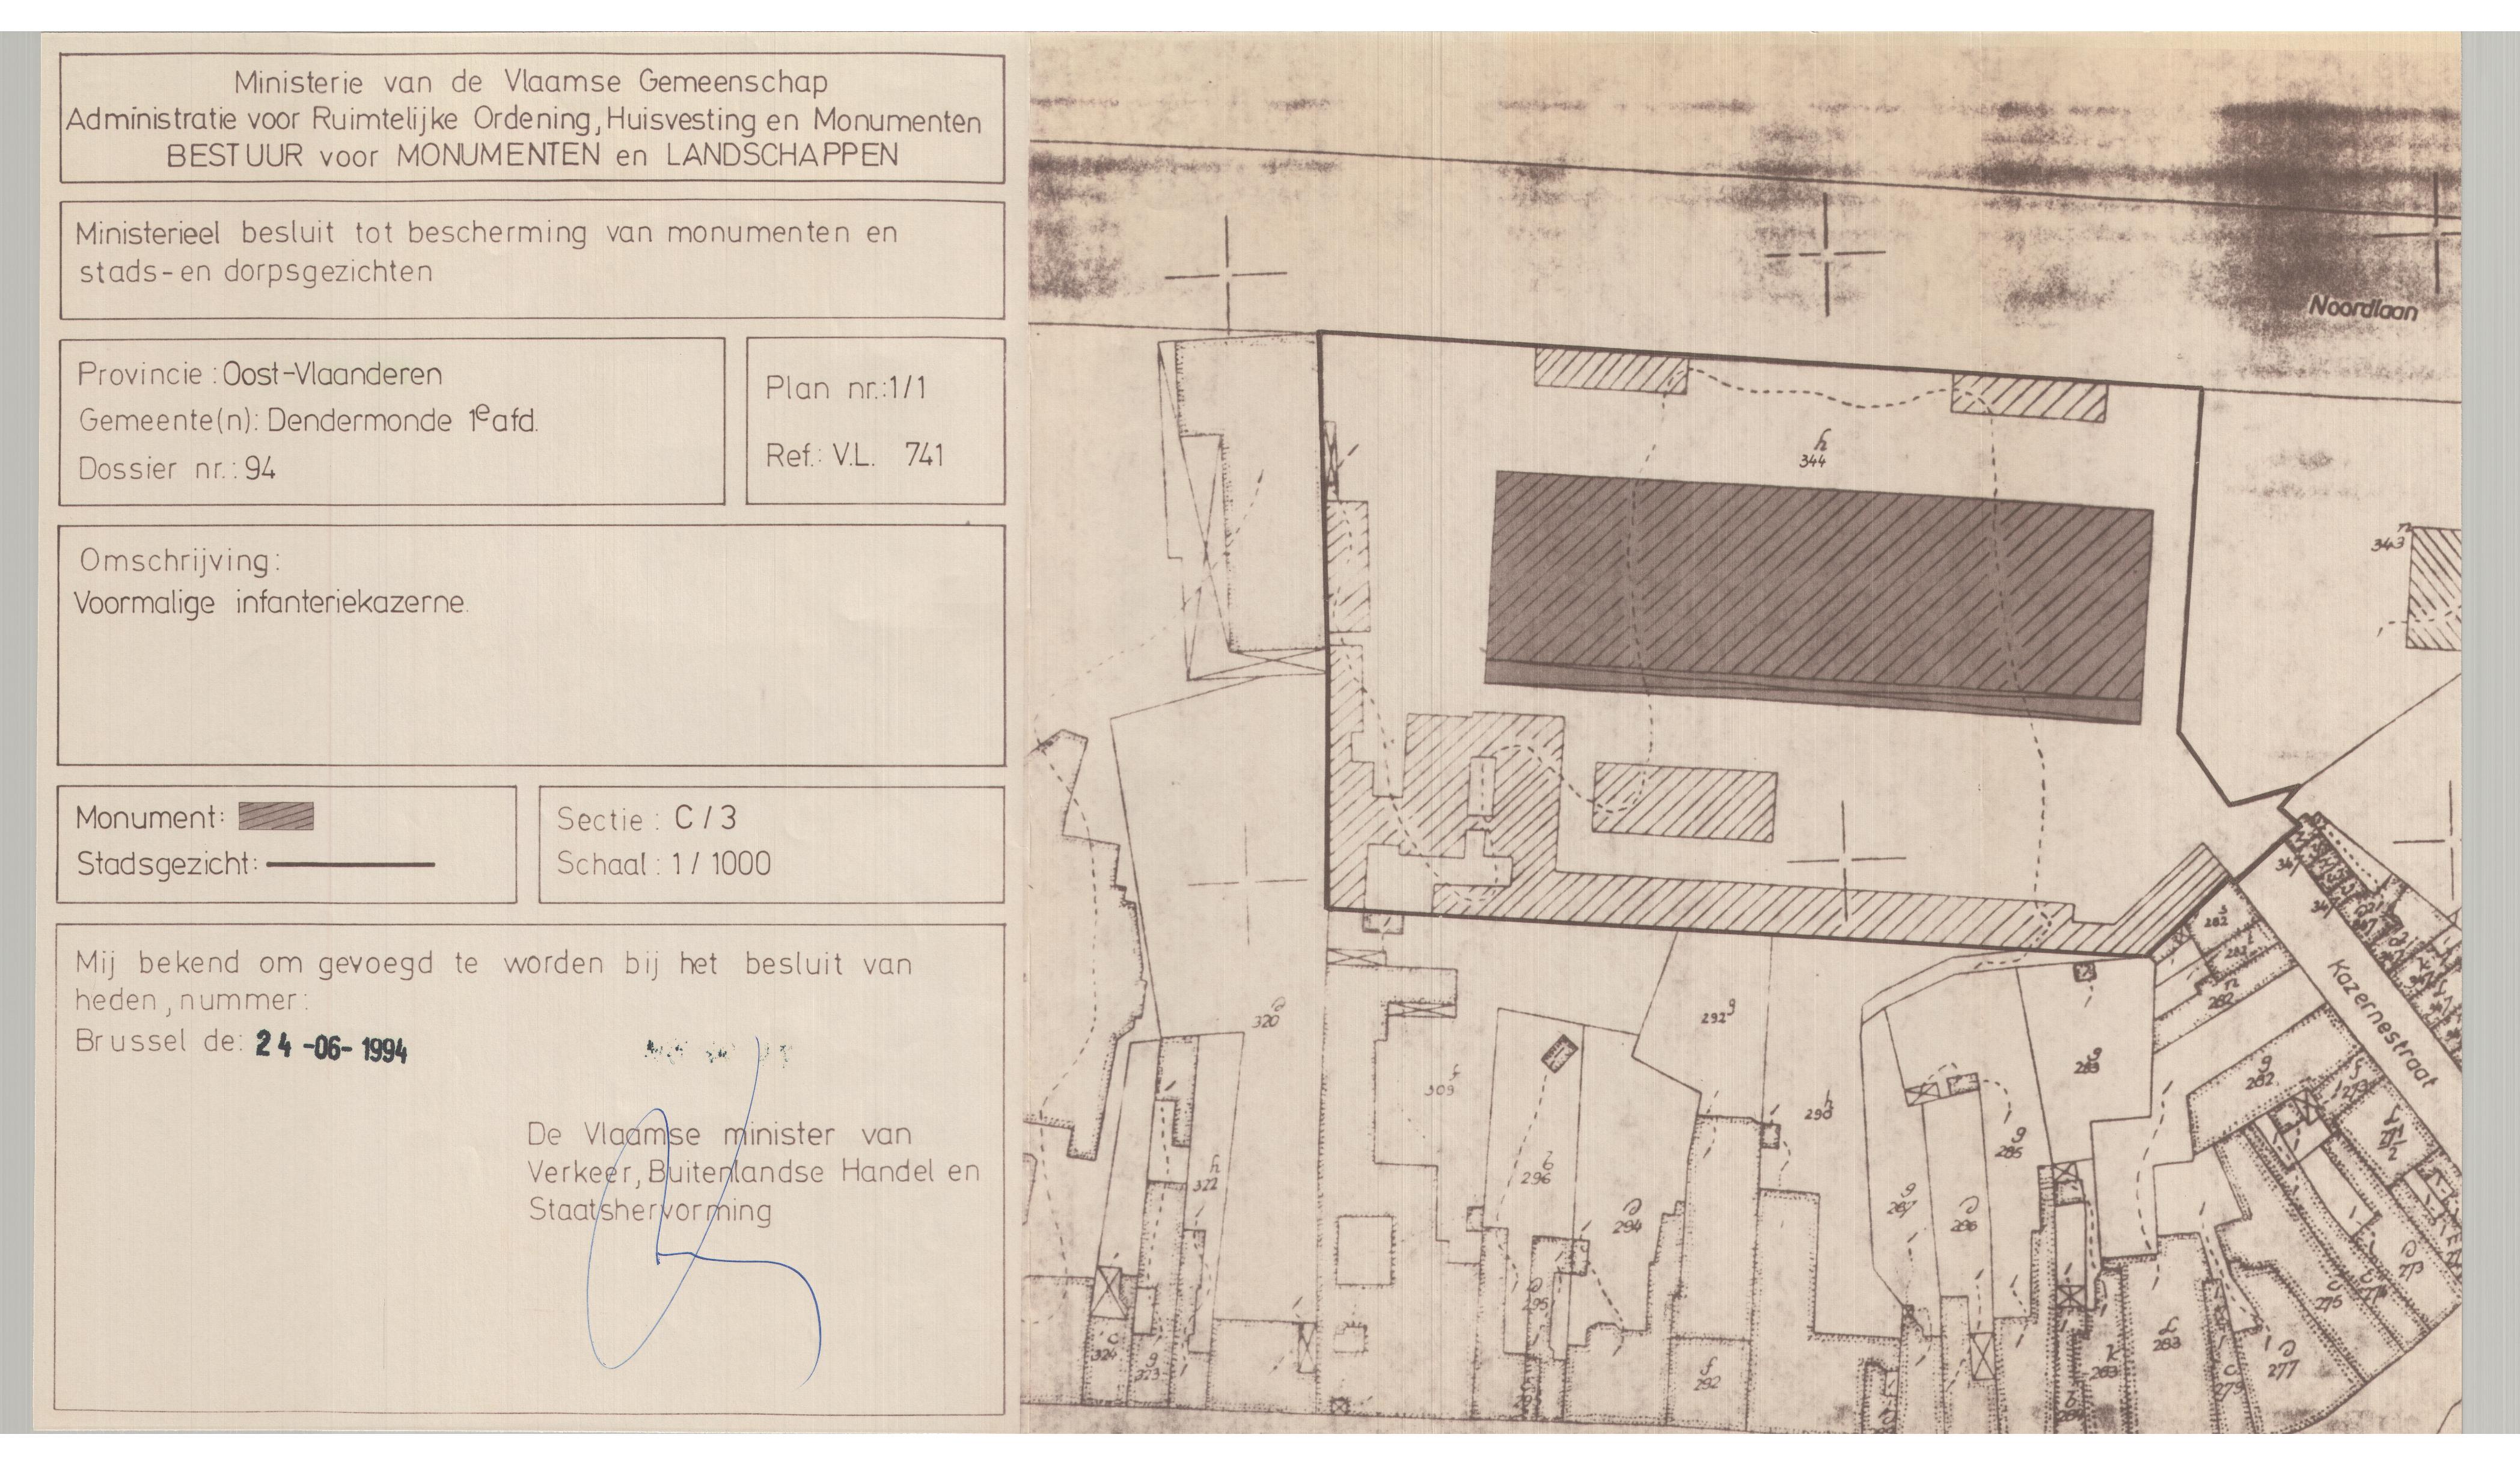 Ministerie van de Vlaamse Gemeenschap
Administratie voor Ruimtelijke Ordening, Huisvesting en Monumenten
BESTUUR voor MONUMENTEN en LANDSCHAPPEN
Ministerieel besluit tot bescherming van monumenten en
stads-en dorpsgezichten
Provincie : Oost-Vlaanderen
Gemeente(n): Dendermonde 1e afd.
Dossier nr.: 94
Plan nr.: 1/1
Ref.: V.L. 741
Omschrijving:
Voormalige infanteriekazerne.
Monument:
Stadsgezicht:
Sectie : C / 3
Schaal : 1 / 1000
Mij bekend om gevoegd te worden bij het besluit van
heden, nummer:
Brussel de: 24 -06- 1994
De Vlaamse minister van
Verkeer, Buitenlandse Handel en
Staatshervorming
Noordlaan
h
344
n
343
Kazernestraat
320
292 g
309
b
296
294
290 h
g
285
g
287
286
h
322
g
282
n
282
c
324
g
323
f
292
k
283
L
283
c
279
277
c
275
273